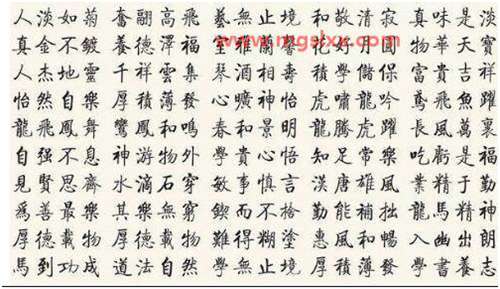 www.mgslxx.com
人淡如菊 奮翮高飛 藝無止境 和敬清寂 真味是淡
真金不鍍 養德澤福 雅蘭馨 花好月圓 物華天寶
人杰地靈 千祥雲集 琴酒 壽 積學儲 富貴吉祥
怡然自樂 厚積薄發 心曠神怡 虎嘯龍吟 鳶飛魚躍
龍飛鳳舞 鸞鳳和鳴 春和景明 龍騰虎躍 長風萬裏
自强不息 神游物外 學貴心悟 知足常樂 吃虧是福
見賢思齊 水滴石穿 敏事慎言 漢唐雄風 業精于勤
爲善最樂 其樂無窮 鍥而不捨 勤能補拙 龍馬精神
厚德載物 厚德載物 難得糊塗 惠風和暢 入幽出朗
馬到功成 道法自然 學無止境 厚積薄發 學書養志